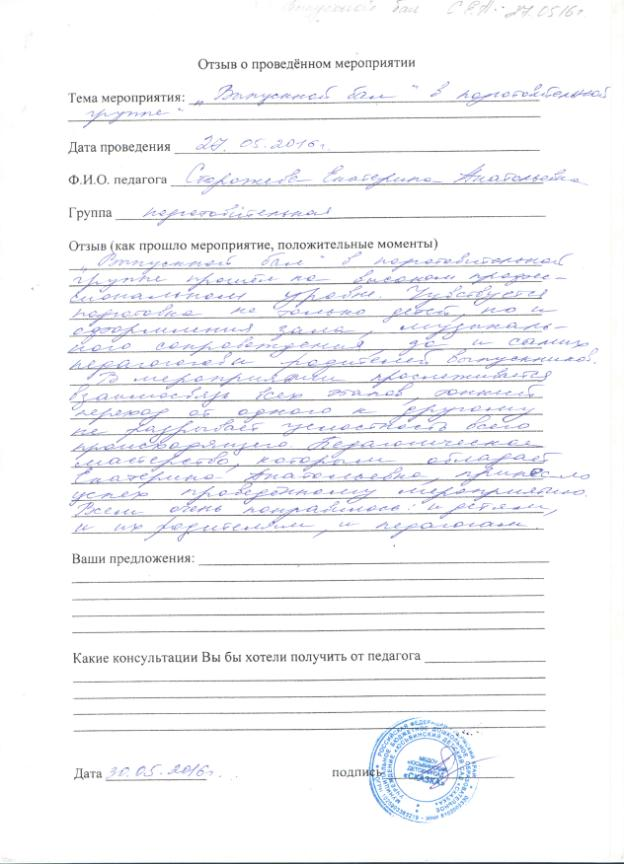 Выпускной бал 27.05.16г.
Отзыв о проведённом мероприятии
Тема мероприятия: „Выпускной бал" в подготовительной
группе
Дата проведения 27.05.2016г.
Ф.И.О. педагога Екатерина Анатольевна
Группа подготовительная
Отзыв (как прошло мероприятие, положительные моменты)
„Выпускной бал" в подготовительной
группе прошёл на высоком профес-
сиональном уровне. Чувствуется
подготовка не только детей, но и
оформления зала, музыкаль-
ного сопровождения, да и самих
педагогов и родителей выпускников.
В мероприятии прослеживается
взаимосвязь всех этапов,
переход от одного к другому
не разрывает целостность всего
происходящего. Педагогическое
мастерство, которым обладает
Екатерина Анатольевна, принесло
успех проведённому мероприятию.
Всем очень понравилось: и детям,
и их родителям, и педагогам.
Ваши предложения:
Какие консультации Вы бы хотели получить от педагога
Дата 30.05.2016 подпись
«СКАЗКА»